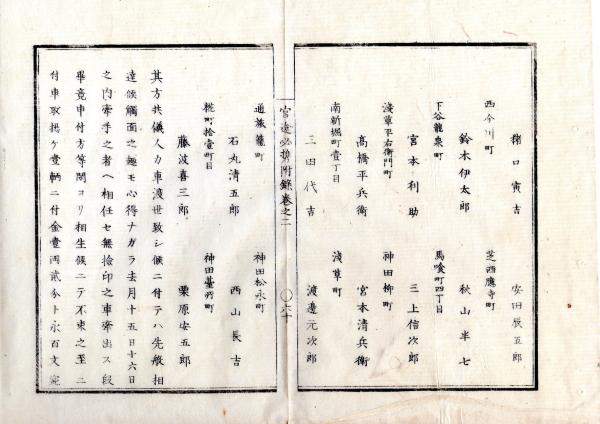 猪口寅吉 安田辰五郎
西今川町 芝西應寺町
鈴木伊太郎 秋山半七
下谷龍泉町 馬喰町四丁目
宮本利助 三上信次郎
淺草平右衛門町 神田柳町
高橋平兵衛 宮本清兵衛
南新堀町壹丁目 淺草町
三田代吉 渡邊元次郎
官途必携附錄卷之二 〇六十
通旅籠町 神田松永町
石丸清五郎 西山長吉
糀町拾壹町目 神田臺所町
藤波喜三郎 栗原安五郎
其方共儀人力車渡世致シ候ニ付テハ先般相
達候觸面之趣モ心得ナガラ去月十五日十六日
之内牽手之者ヘ相任セ無檢印之車牽出ス段
畢竟申付方等閑ヨリ相生候ニテ不束之至ニ
付車取揚ケ壹輌ニ付金壹両貳分ト永百文宛